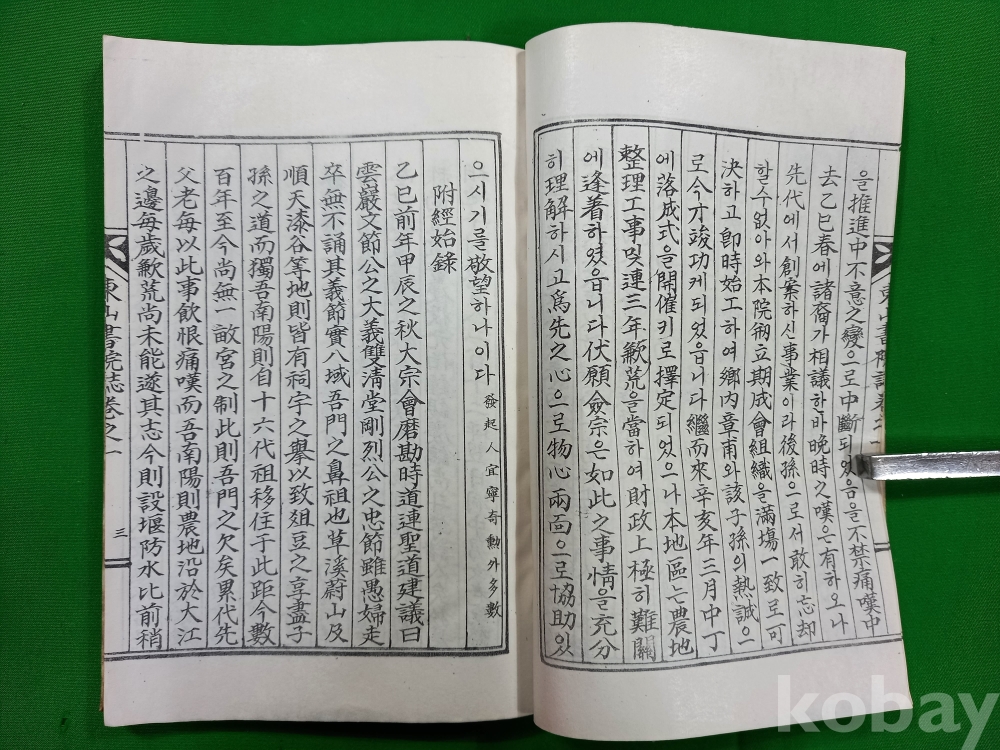 을推進中不意之變으로中斷되었음을不禁痛嘆中
去乙巳春에諸裔가相議한바晩時之嘆은有하오나
先代에서創案하신事業이라後孫으로서敢히忘却
할수없아와本院刱立期成會組織을滿場一致로可
決하고卽時始工하여鄕內章甫와該子孫의熱誠으
로今才竣功케되었읍니다繼而來辛亥年三月中丁
에落成式을開催키로擇定되었으나本地區는農地
整理工事및連三年歉荒을當하여財政上極히難關
에逢着하였읍니다伏願僉宗은如此之事情을充分
히理解하시고爲先之心으로物心兩面으로協助있
으시기를敬望하나이다 發起人宜寧奇勳外多數
附經始錄
乙巳前年甲辰之秋大宗會磨勘時道連聖道建議曰
雲巖文節公之大義雙淸堂剛烈公之忠節雖愚婦走
卒無不誦其義節實八域吾門之鼻祖也草溪蔚山及
順天漆谷等地則皆有祠宇之擧以致俎豆之享盡子
孫之道而獨吾南陽則自十六代祖移住于此距今數
百年至今尚無一畝宮之制此則吾門之欠矣累代先
父老每以此事飮恨痛嘆而吾南陽則農地沿於大江
之邊每歲歉荒尚未能遂其志今則設堰防水比前稍
東山書院誌卷之一
三
kobay